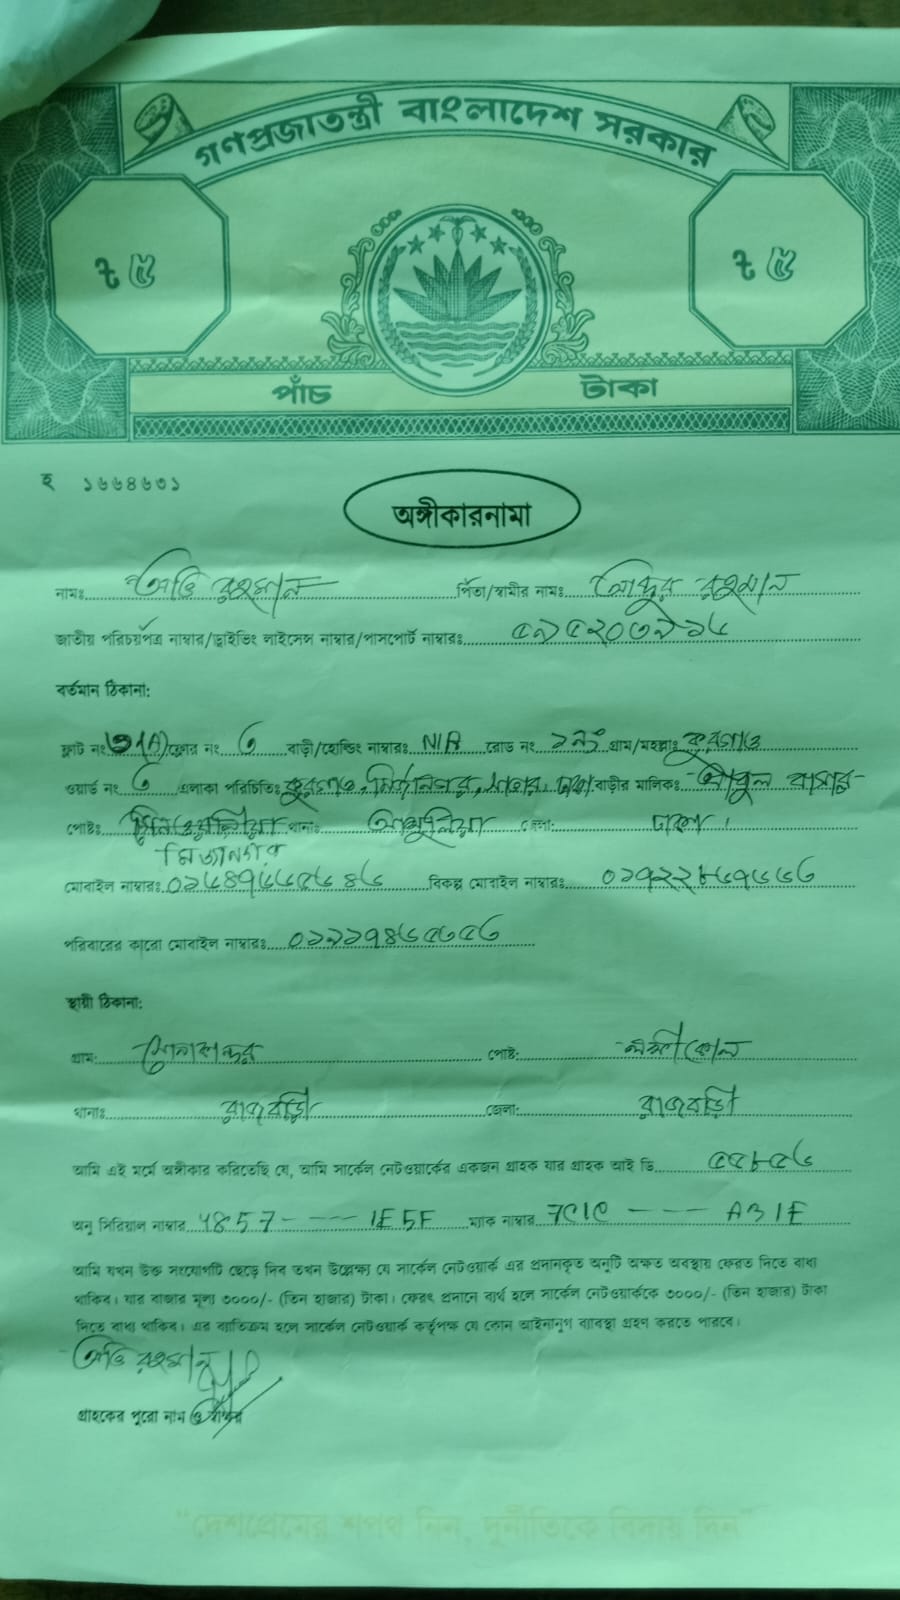 গণপ্রজাতন্ত্রী বাংলাদেশ সরকার
৳ ৫ ৳ ৫
পাঁচ টাকা
হ ১৬৬৪৬৩১
অঙ্গীকারনামা
নামঃ অভি রহমান পিতা/স্বামীর নামঃ আব্দুর রহমান
জাতীয় পরিচয়পত্র নাম্বার/ড্রাইভিং লাইসেন্স নাম্বার/পাসপোর্ট নাম্বারঃ
বর্তমান ঠিকানা:
ফ্লাট নং ফ্লোর নং ৩ বাড়ী/হোল্ডিং নাম্বারঃ N/A রোড নং ১নং গ্রাম/মহল্লাঃ কুরগাও
ওয়ার্ড নং ৩ এলাকা পরিচিতিঃ কুরগাও, মির্জানগর, সাভার, ঢাকা বাড়ীর মালিকঃ আবুল বাসার
পোষ্টঃ থানাঃ আশুলিয়া জেলা: ঢাকা।
মির্জানগর
মোবাইল নাম্বারঃ বিকল্প মোবাইল নাম্বারঃ
পরিবারের কারো মোবাইল নাম্বারঃ
স্থায়ী ঠিকানা:
গ্রাম: পোষ্ট: লক্ষীকোল
থানাঃ রাজবাড়ী জেলা: রাজবাড়ী
আমি এই মর্মে অঙ্গীকার করিতেছি যে, আমি সার্কেল নেটওয়ার্কের একজন গ্রাহক যার গ্রাহক আই ডি ৫৫৮৫৬
অনু সিরিয়াল নাম্বার 4857---- 1E5F ম্যাক নাম্বার 7C1C --- A31F
আমি যখন উক্ত সংযোগটি ছেড়ে দিব তখন উল্লেক্ষ্য যে সার্কেল নেটওয়ার্ক এর প্রদানকৃত অনুটি অক্ষত অবস্থায় ফেরত দিতে বাধ্য
থাকিব। যার বাজার মূল্য ৩০০০/- (তিন হাজার) টাকা। ফেরৎ প্রদানে ব্যর্থ হলে সার্কেল নেটওয়ার্ককে ৩০০০/- (তিন হাজার) টাকা
দিতে বাধ্য থাকিব। এর ব্যতিক্রম হলে সার্কেল নেটওয়ার্ক কর্তৃপক্ষ যে কোন আইনানুগ ব্যাবস্থা গ্রহণ করতে পারবে।
অভি রহমান
গ্রাহকের পুরো নাম ও স্বাক্ষর
"দেশপ্রেমের শপথ নিন, দুর্নীতিকে বিদায় দিন"